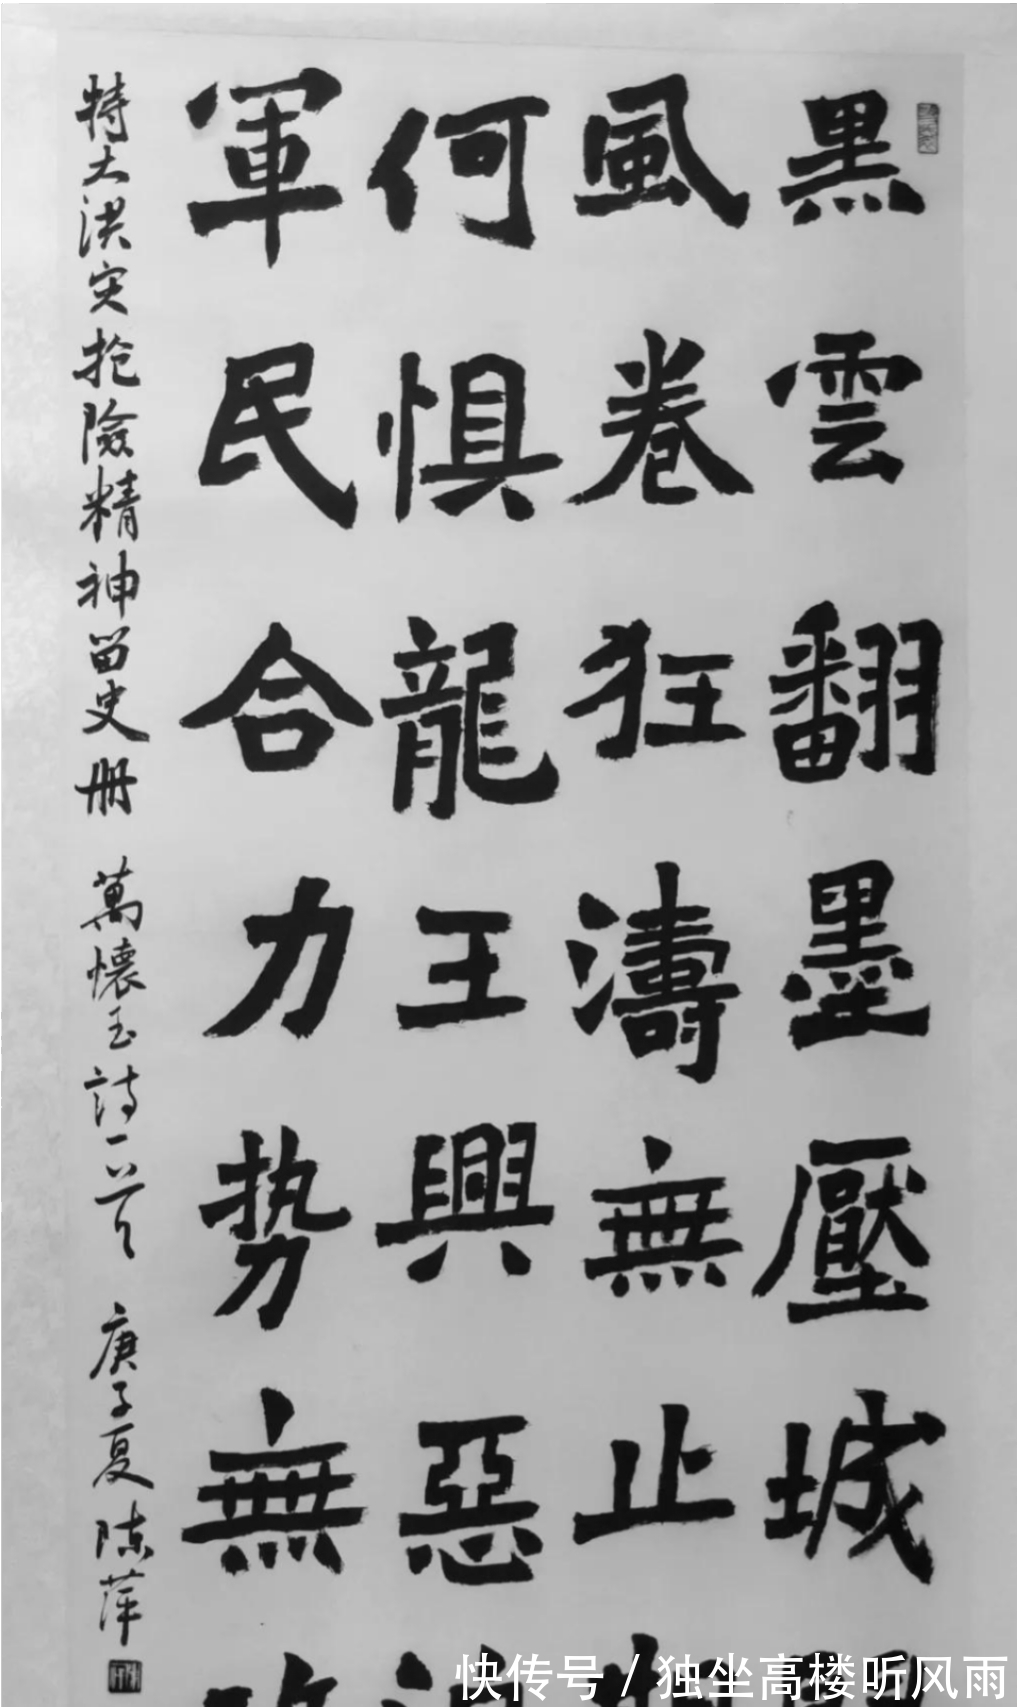 黑雲翻墨壓城
風卷狂濤無止
何惧龍王興惡
軍民合力势無
特大洪灾抢險精神留史册 萬懷玉詩一首 庚子夏 陈萍
快传号 / 独坐高楼听风雨